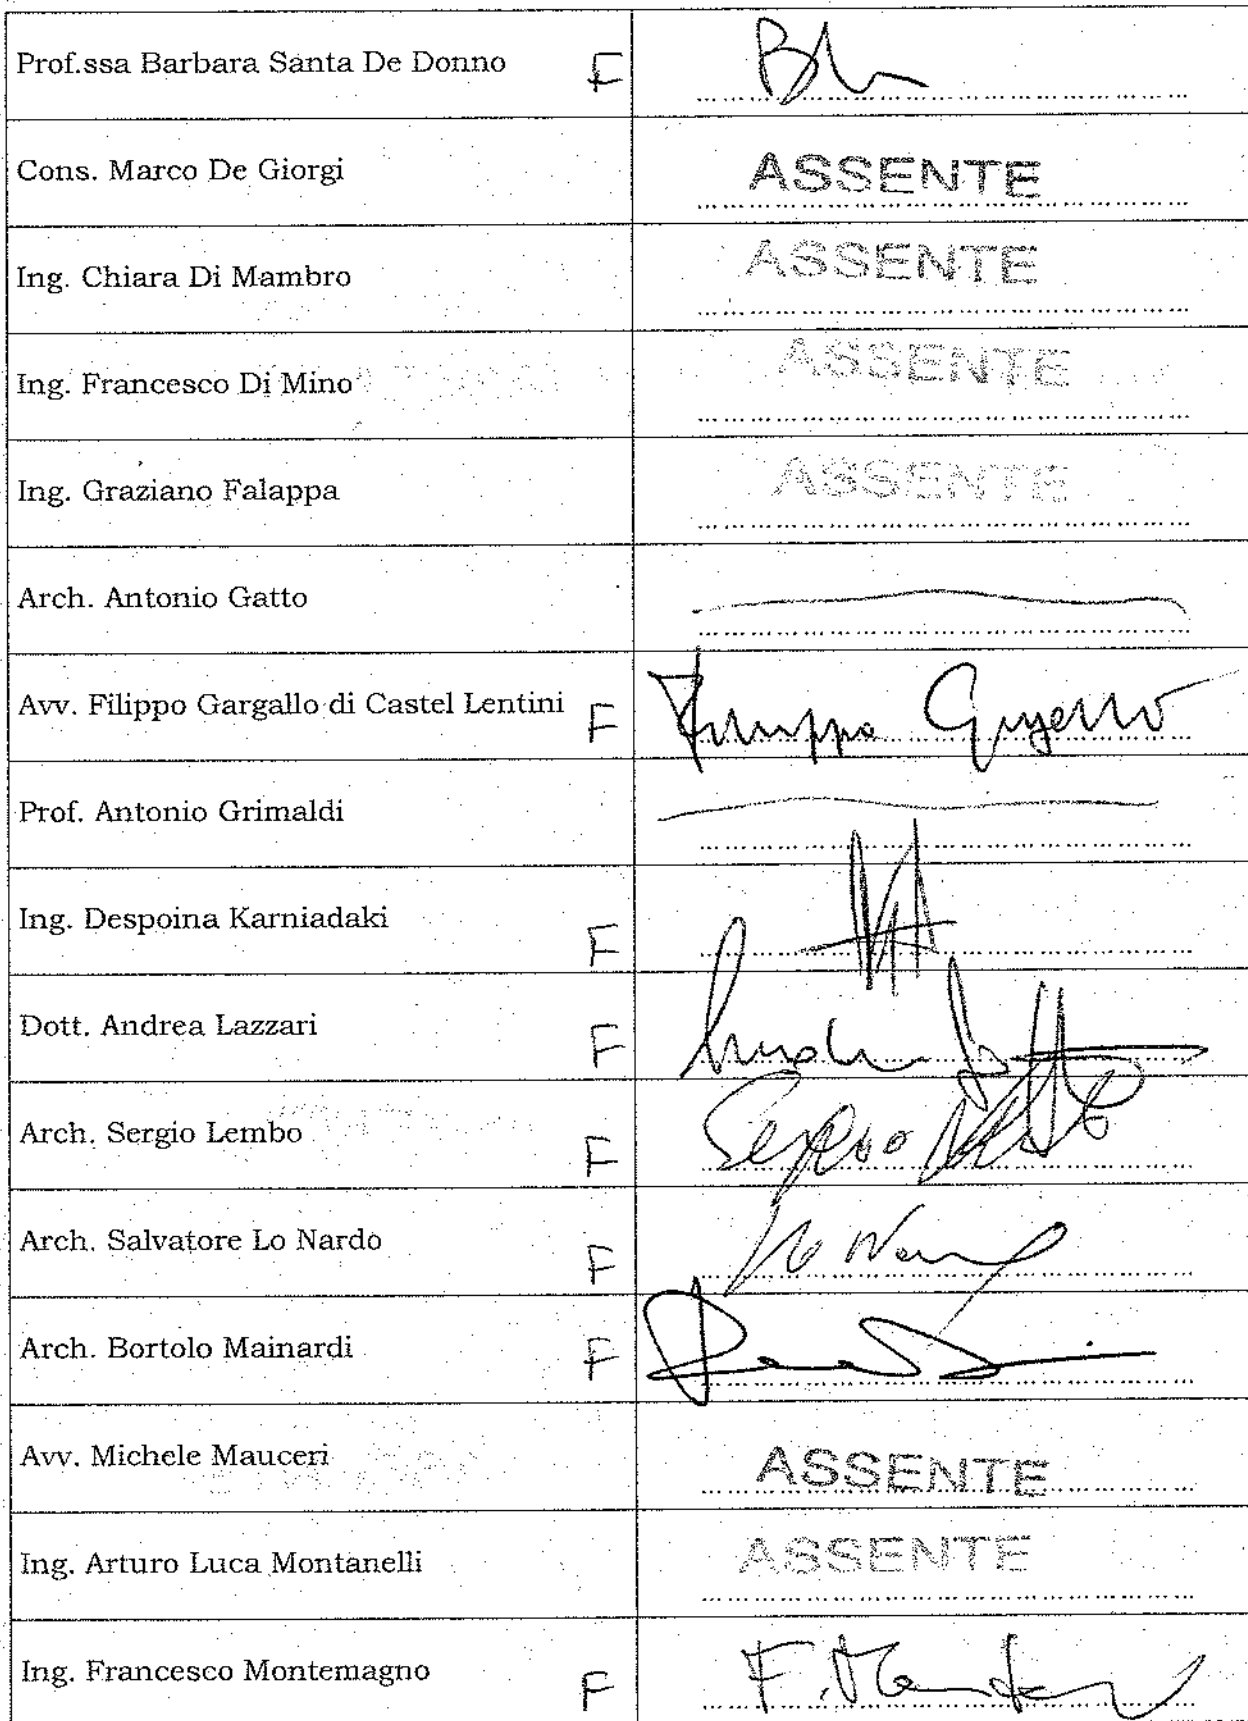 Prof.ssa Barbara Santa De Donno F
Cons. Marco De Giorgi ASSENTE
Ing. Chiara Di Mambro ASSENTE
Ing. Francesco Di Mino ASSENTE
Ing. Graziano Falappa ASSENTE
Arch. Antonio Gatto
Avv. Filippo Gargallo di Castel Lentini F Filippo
Prof. Antonio Grimaldi
Ing. Despoina Karniadaki F
Dott. Andrea Lazzari F
Arch. Sergio Lembo F Sergio
Arch. Salvatore Lo Nardo F
Arch. Bortolo Mainardi F
Avv. Michele Mauceri ASSENTE
Ing. Arturo Luca Montanelli ASSENTE
Ing. Francesco Montemagno F F.